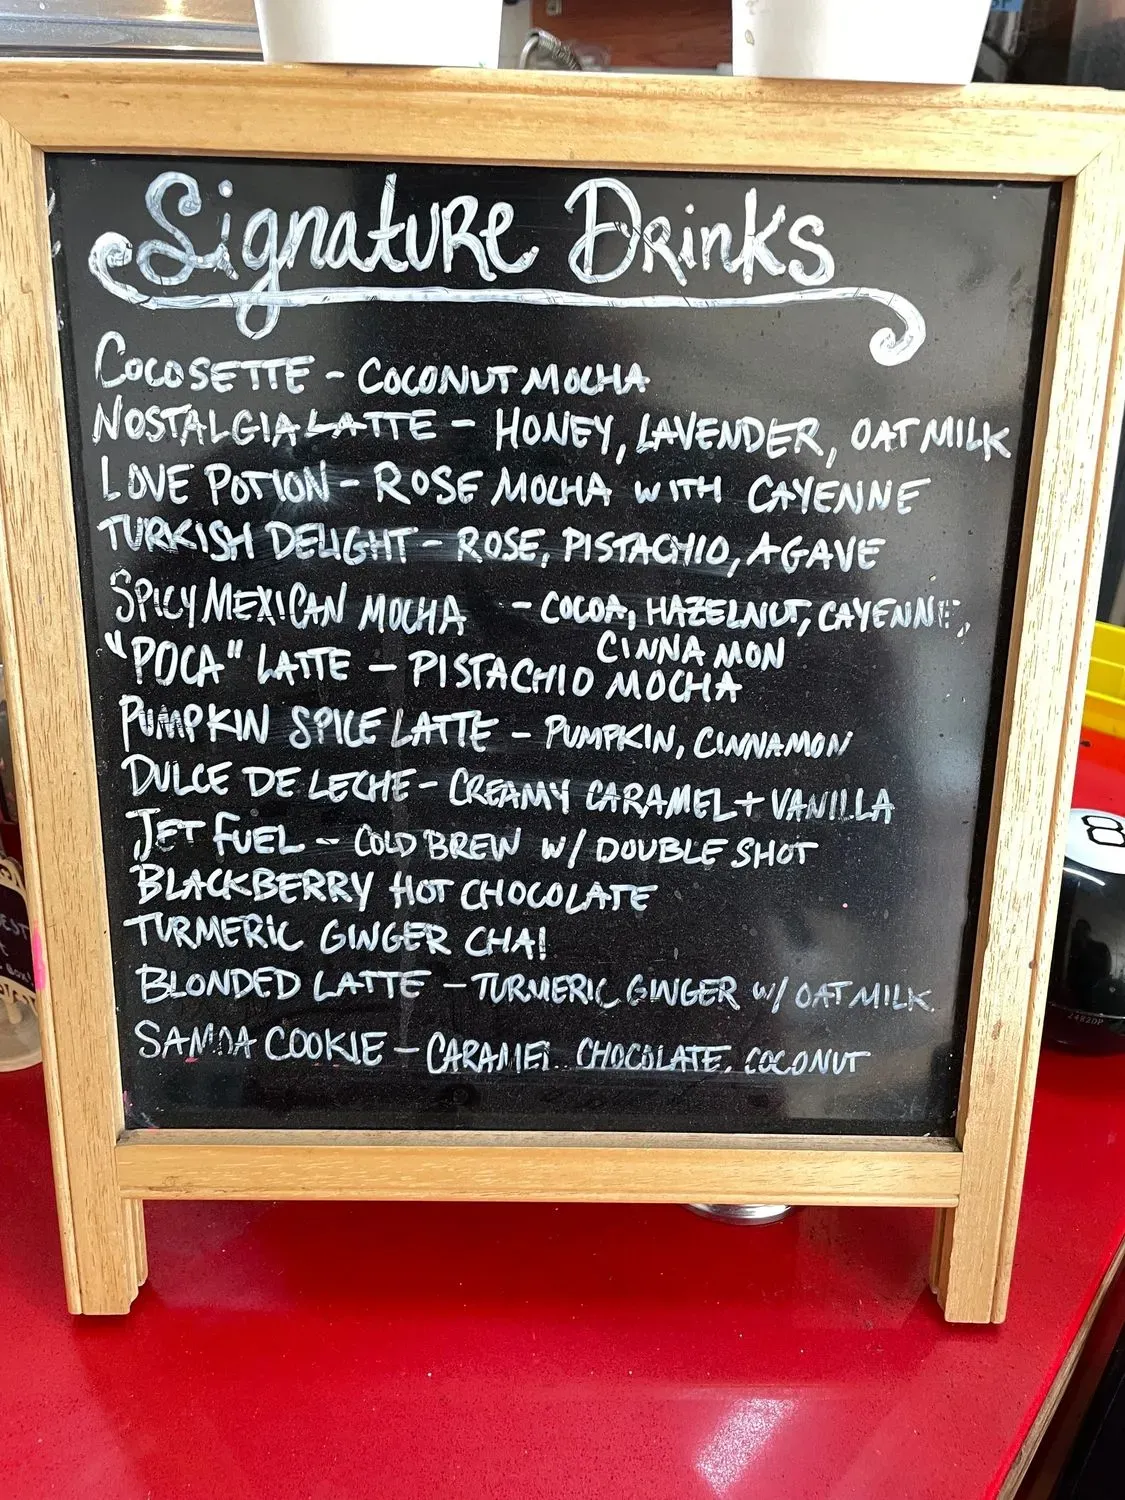 Signature Drinks
COCOSETTE - COCONUT MOCHA
NOSTALGIA LATTE - HONEY, LAVENDER, OAT MILK
LOVE POTION - ROSE MOCHA WITH CAYENNE
TURKISH DELIGHT - ROSE, PISTACHIO, AGAVE
SPICY MEXICAN MOCHA - COCOA, HAZELNUT, CAYENNE,
CINNAMON
"POCA" LATTE - PISTACHIO MOCHA
PUMPKIN SPICE LATTE - PUMPKIN, CINNAMON
DULCE DE LECHE - CREAMY CARAMEL + VANILLA
JET FUEL - COLD BREW W/ DOUBLE SHOT
BLACKBERRY HOT CHOCOLATE
TURMERIC GINGER CHAI
BLONDED LATTE - TURMERIC GINGER W/ OAT MILK
SAMOA COOKIE - CARAMEL, CHOCOLATE, COCONUT
8